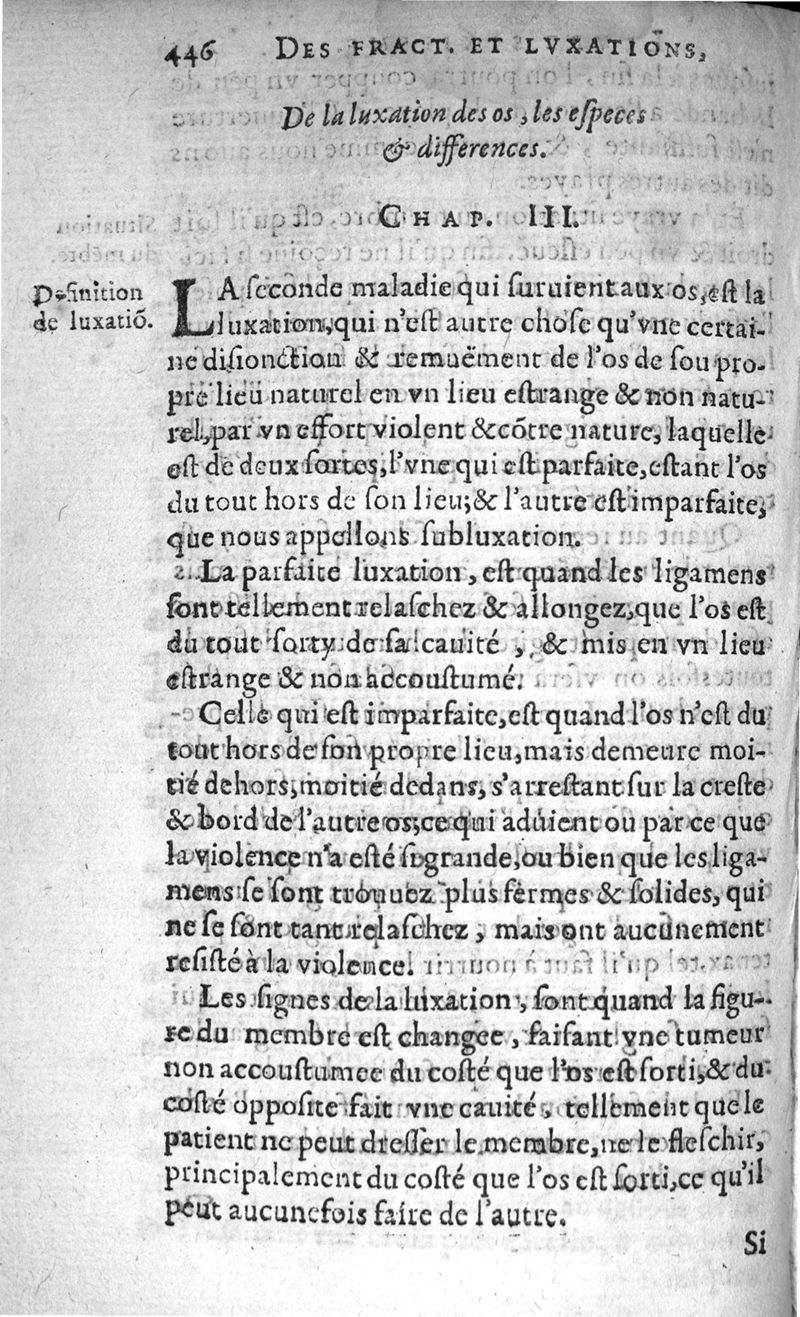 446 DES FRACT. ET LVXATIONS,
De la luxation des os, les eſpeces
& differences.
CHAP. III.
Definition
de luxatiō.
LA ſeconde maladie qui ſuruient aux os, eſt la
luxation, qui n'eſt autre choſe qu'vne certai-
ne diſionction & remuëment de l'os de ſou pro-
pre lieu naturel en vn lieu eſtrange & non natu-
rel, par vn effort violent & cōtre nature, laquelle
eſt de deux ſortes, l'vne qui eſt parfaite, eſtant l'os
du tout hors de ſon lieu; & l'autre eſt imparfaite,
que nous appellons ſubluxation.
La parfaite luxation, eſt quand les ligamens
ſont tellement relaſchez & allongez, que l'os eſt
du tout ſorty de ſa cauité, & mis en vn lieu
eſtrange & non accouſtumé.
Celle qui eſt imparfaite, eſt quand l'os n'eſt du
tout hors de ſon propre lieu, mais demeure moi-
tié dehors, moitié dedans, s'arreſtant ſur la creſte
& bord de l'autre os; ce qui aduient ou par ce que
la violence n'a eſté ſi grande, ou bien que les liga-
mens ſe ſont trouuez plus fermes & ſolides, qui
ne ſe ſont tant relaſchez, mais ont aucunement
reſiſté à la violence.
Les ſignes de la luxation, ſont quand la figu-
re du membre eſt changee, faiſant vne tumeur
non accouſtumee du coſté que l'os eſt ſorti, & du
coſté oppoſite fait vne cauité, tellement que le
patient ne peut dreſſer le membre, ne le fleſchir,
principalement du coſté que l'os eſt ſorti, ce qu'il
peut aucunefois faire de l'autre.
Si